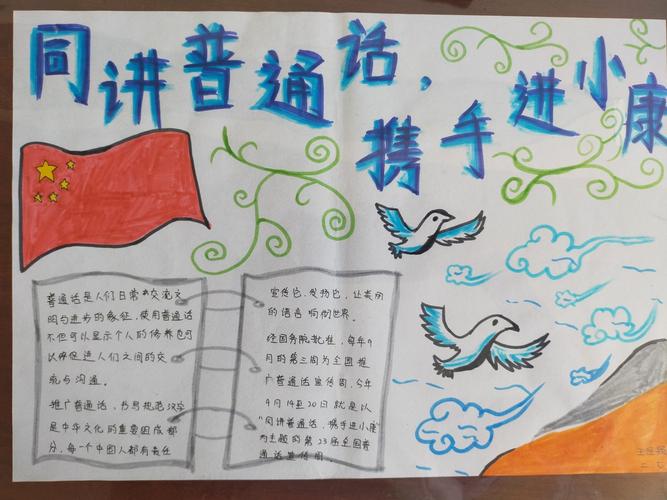 同讲普通话，
携手进小康
普通话是人们日常交流文
明与进步的象征，使用普通话
不但可以显示个人的修养也可
以促进人们之间的交
流与沟通。
推广普通话，书写规范汉字
是中华文化的重要组成部
分，每一个中国人都有责任
宣传它，发扬它，让美丽
的语言响彻世界。
经国务院批准，每年9
月的第三周为全国推
广普通话宣传周，今年
9月14至20日就是以
“同讲普通话，携手进小康”
为主题的第23届全国普
通话宣传周。
二